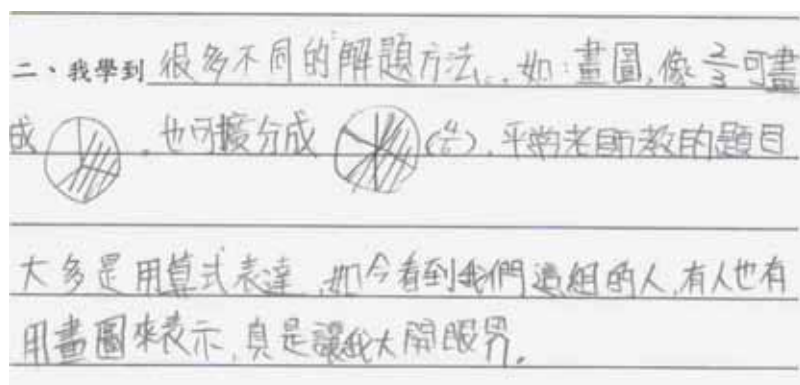 二、我學到 很多不同的解題方法、, 如:畫圖,像 2/3 可畫
成 , 也可擴分成 (4/6), 平常老師教的題目
大多是用算式表達, 如今看到我們這組的人,有人也有
用畫圖來表示,真是讓我大開眼界。